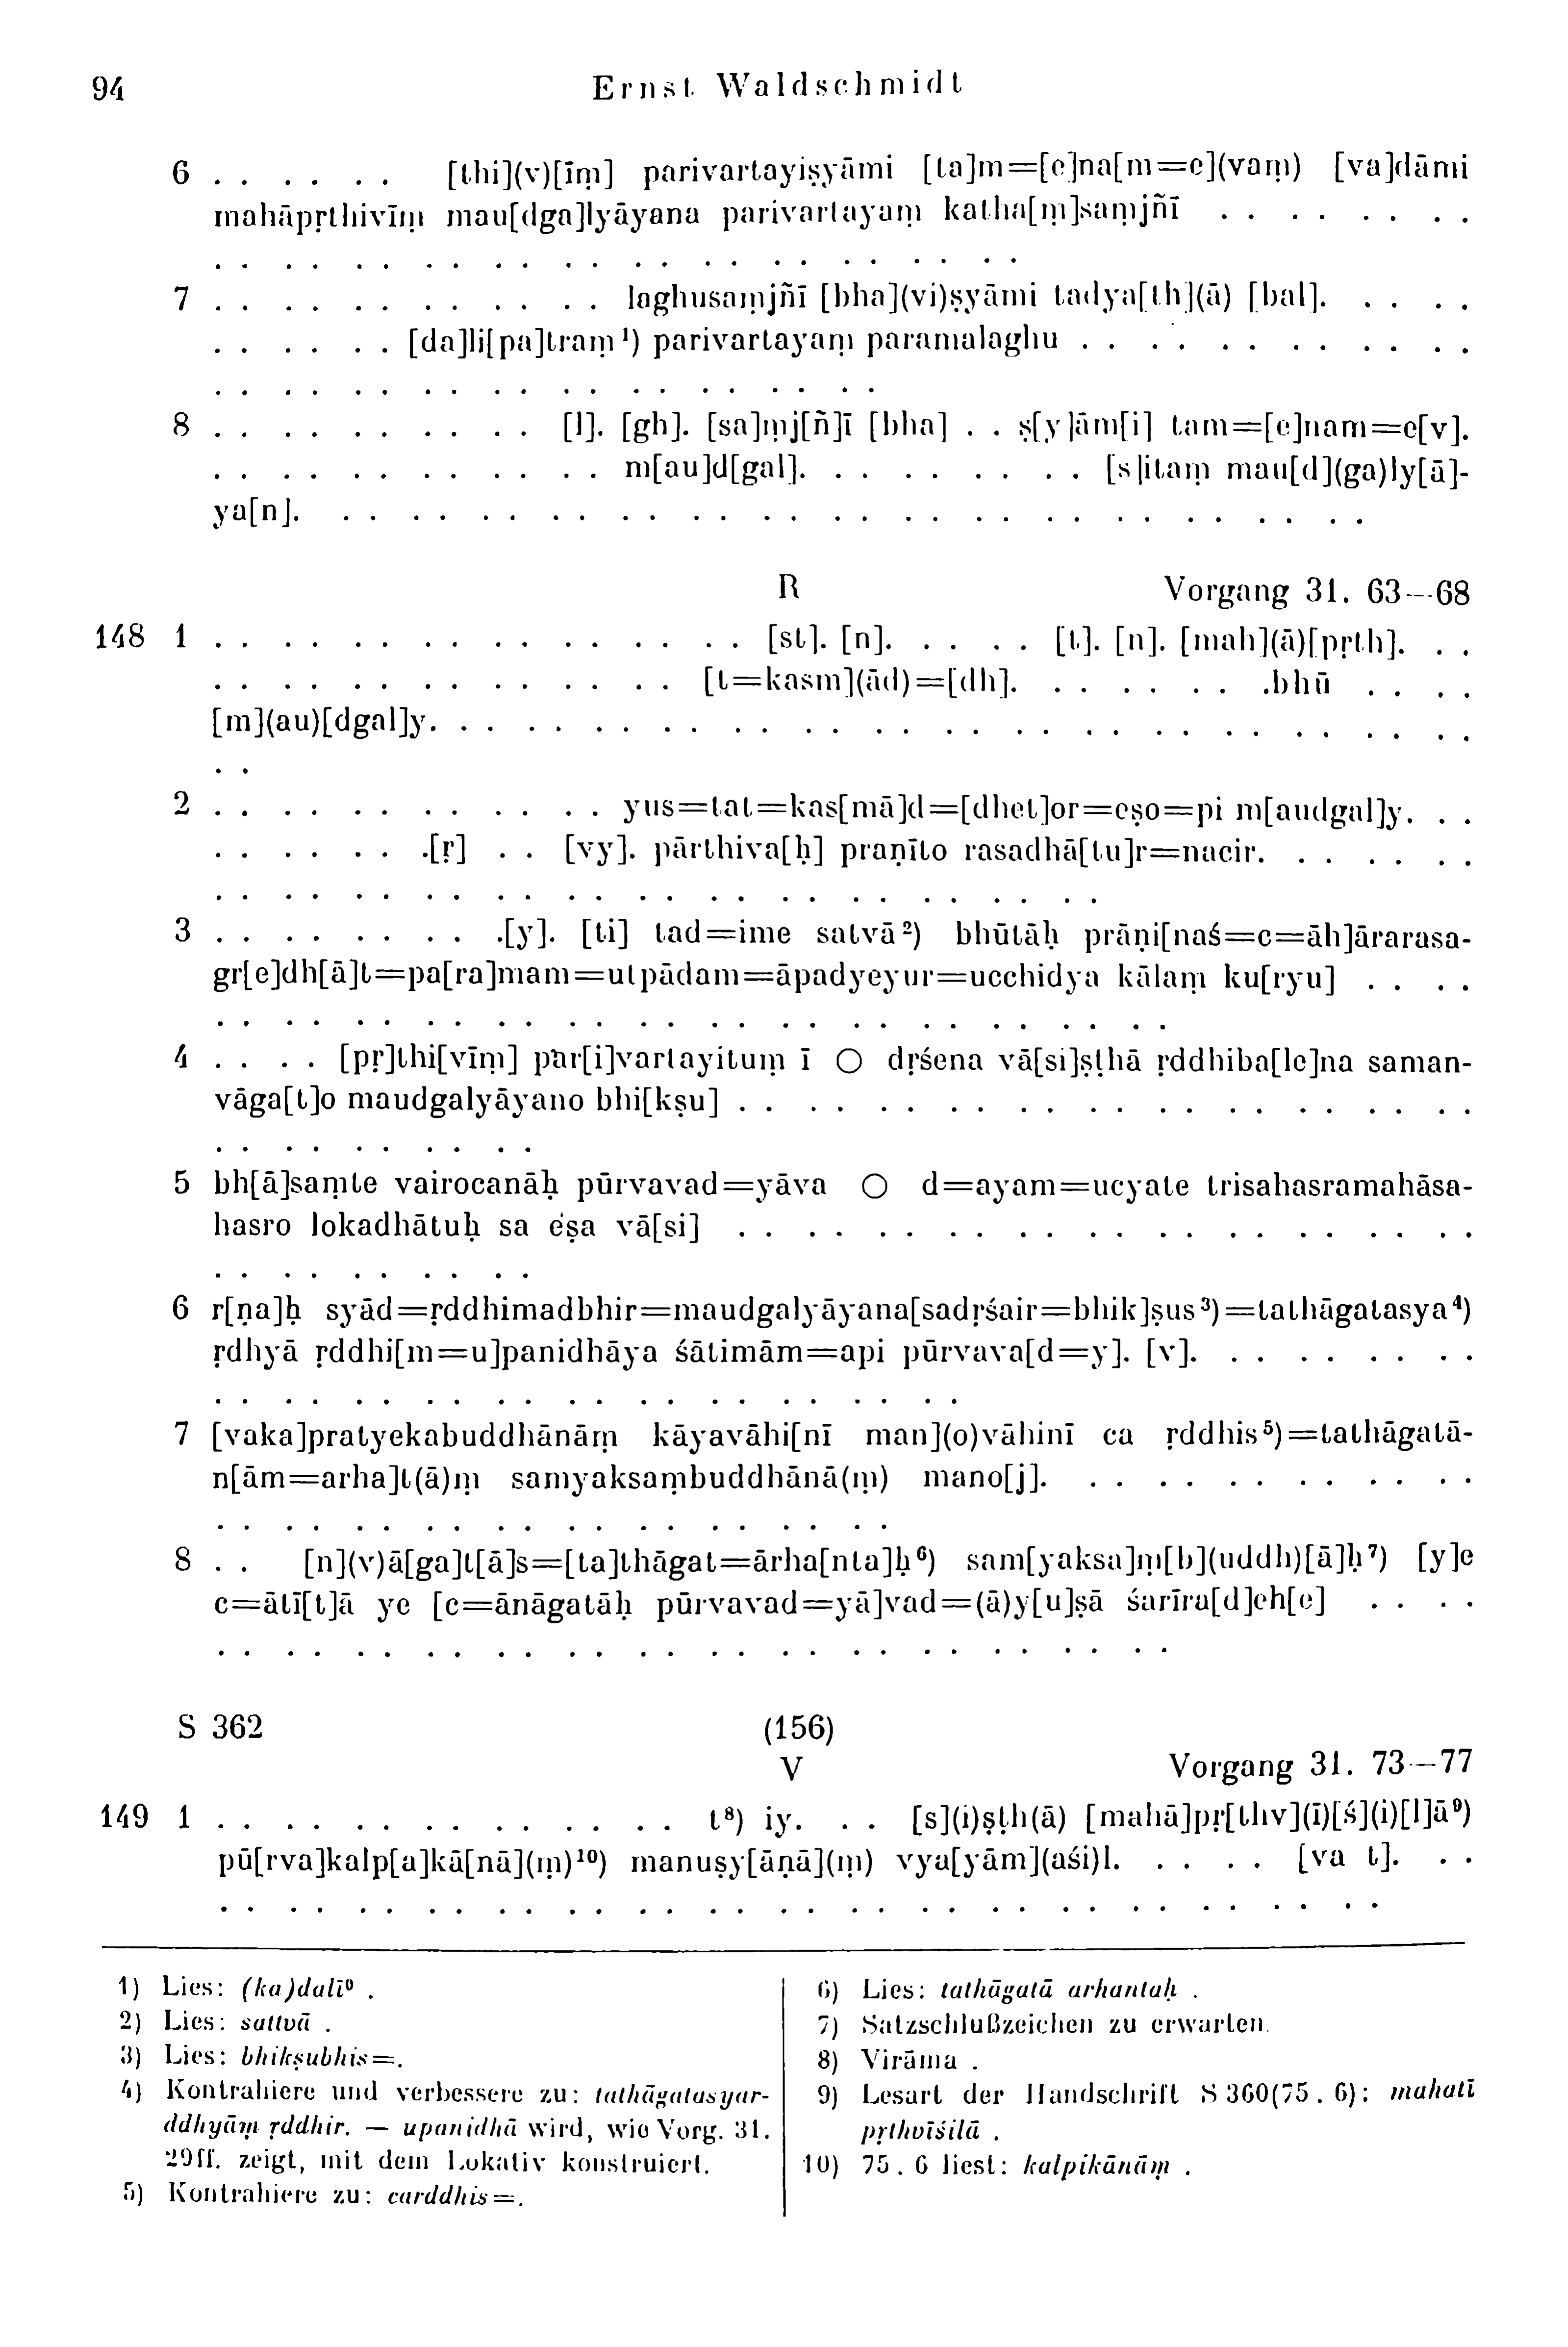 94 Ernst Waldschmidt
6 . . . . . . [thi](v)[īṃ] parivartayiṣyāmi [ta]m=[e]na[m=e](vaṃ) [va]dāmi
mahāpṛthivīṃ mau[dga]lyāyana parivartayaṃ katha[ṃ]saṃjñī . . . . . . . .
. . . . . . . . . . . . . . . . . . . . . . . .
7 . . . . . . . . . . . . laghusaṃjñī [bha](vi)ṣyāmi tadya[th](ā) [bal]. . . . .
. . . . . . [da]li[pa]traṃ¹) parivartayaṃ paramalaghu . . . . . . . . . . . .
. . . . . . . . . . . . . . . . . . . .
8 . . . . . . . . . . [l]. [gh]. [sa]ṃj[ñ]ī [bha] . . ṣ[y]ām[i] tam=[e]nam=e[v].
. . . . . . . . . . . . m[au]d[gal]. . . . . . . . . [s]itaṃ mau[d](ga)ly[ā]-
ya[n]. . . . . . . . . . . . . . . . . . . . . . . . . . . . . . .
R Vorgang 31. 63—68
148 1 . . . . . . . . . . . . . . . . [st]. [n]. . . . . [t]. [n]. [mah](ā)[pṛth]. . .
. . . . . . . . . . . . . . [t=kasm](ād)=[dh]. . . . . . . . .bhū . . . .
[m](au)[dgal]y. . . . . . . . . . . . . . . . . . . . . . . . . . . . . . .
. .
2 . . . . . . . . . . . . yus=tat=kas[mā]d=[dhet]or=eṣo=pi m[audgal]y. . .
. . . . . . .[ṛ] . . [vy]. pārthiva[ḥ] praṇīto rasadhā[tu]r=nacir. . . . . . .
. . . . . . . . . . . . . . . . . . . . . . . . . .
3 . . . . . . . . .[y]. [ti] tad=ime satvā²) bhūtāḥ prāṇi[naś=c=āh]ārarasa-
gr[e]dh[ā]t=pa[ra]mam=utpādam=āpadyeyur=ucchidya kālaṃ ku[ryu] . . . .
. . . . . . . . . . . . . . . . . . . . . . . . . . . .
4 . . . . [pṛ]thi[vīṃ] par[i]vartayituṃ ī ○ dṛśena vā[si]ṣṭhā ṛddhiba[le]na saman-
vāga[t]o maudgalyāyano bhi[kṣu] . . . . . . . . . . . . . . . . . . . . . .
. . . . . . . . . .
5 bh[ā]saṃte vairocanāḥ pūrvavad=yāva ○ d=ayam=ucyate trisahasramahāsa-
hasro lokadhātuḥ sa eṣa vā[si] . . . . . . . . . . . . . . . . . . . . . .
. . . . . . . . . .
6 r[ṇa]ḥ syād=ṛddhimadbhir=maudgalyāyana[sadṛśair=bhik]ṣus³)=tathāgatasya⁴)
ṛdhyā ṛddhi[m=u]panidhāya śātimām=api pūrvava[d=y]. [v]. . . . . . . . .
. . . . . . . . . . . . . . . . . . . . . .
7 [vaka]pratyekabuddhānāṃ kāyavāhi[nī man](o)vāhinī ca ṛddhis⁵)=tathāgatā-
n[ām=arha]t(ā)ṃ samyaksaṃbuddhānā(ṃ) mano[j]. . . . . . . . . . . . .
. . . . . . . . . . . . . . . . . . . .
8 . . [n](v)ā[ga]t[ā]s=[ta]thāgat=ārha[nta]ḥ⁶) sam[yaksa]ṃ[b](uddh)[ā]ḥ⁷) [y]e
c=ātī[t]ā ye [c=ānāgatāḥ pūrvavad=yā]vad=(ā)y[u]ṣā śarīra[d]eh[e] . . . .
. . . . . . . . . . . . . . . . . . . . . . . . . . . .
S 362 (156)
V Vorgang 31. 73—77
149 1 . . . . . . . . . . . . . . t⁸) iy. . . [s](i)ṣṭh(ā) [mahā]pṛ[thv](ī)[ś](i)[l]ā⁹)
pū[rva]kalp[a]kā[nā](ṃ)¹⁰) manuṣy[āṇā](ṃ) vya[yām](aśi)l. . . . . [va t]. . .
. . . . . . . . . . . . . . . . . . . . . . . . . . . . . . . . . .
1) Lies: (ka)dalī⁰ .
2) Lies: sattvā .
3) Lies: bhikṣubhis=.
4) Kontrahiere und verbessere zu: tathāgatasyar-
ddhyāṃ ṛddhir. — upanidhā wird, wie Vorg. 31.
29ff. zeigt, mit dem Lokativ konstruiert.
5) Kontrahiere zu: carddhis=.
6) Lies: tathāgatā arhantaḥ .
7) Satzschlußzeichen zu erwarten.
8) Virāma .
9) Lesart der Handschrift S 360(75. 6): mahatī
pṛthvīśilā .
10) 75. 6 liest: kalpikānāṃ .